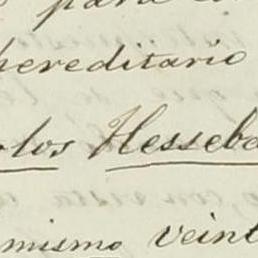 para
hereditario
los Hesseba
mismo veint